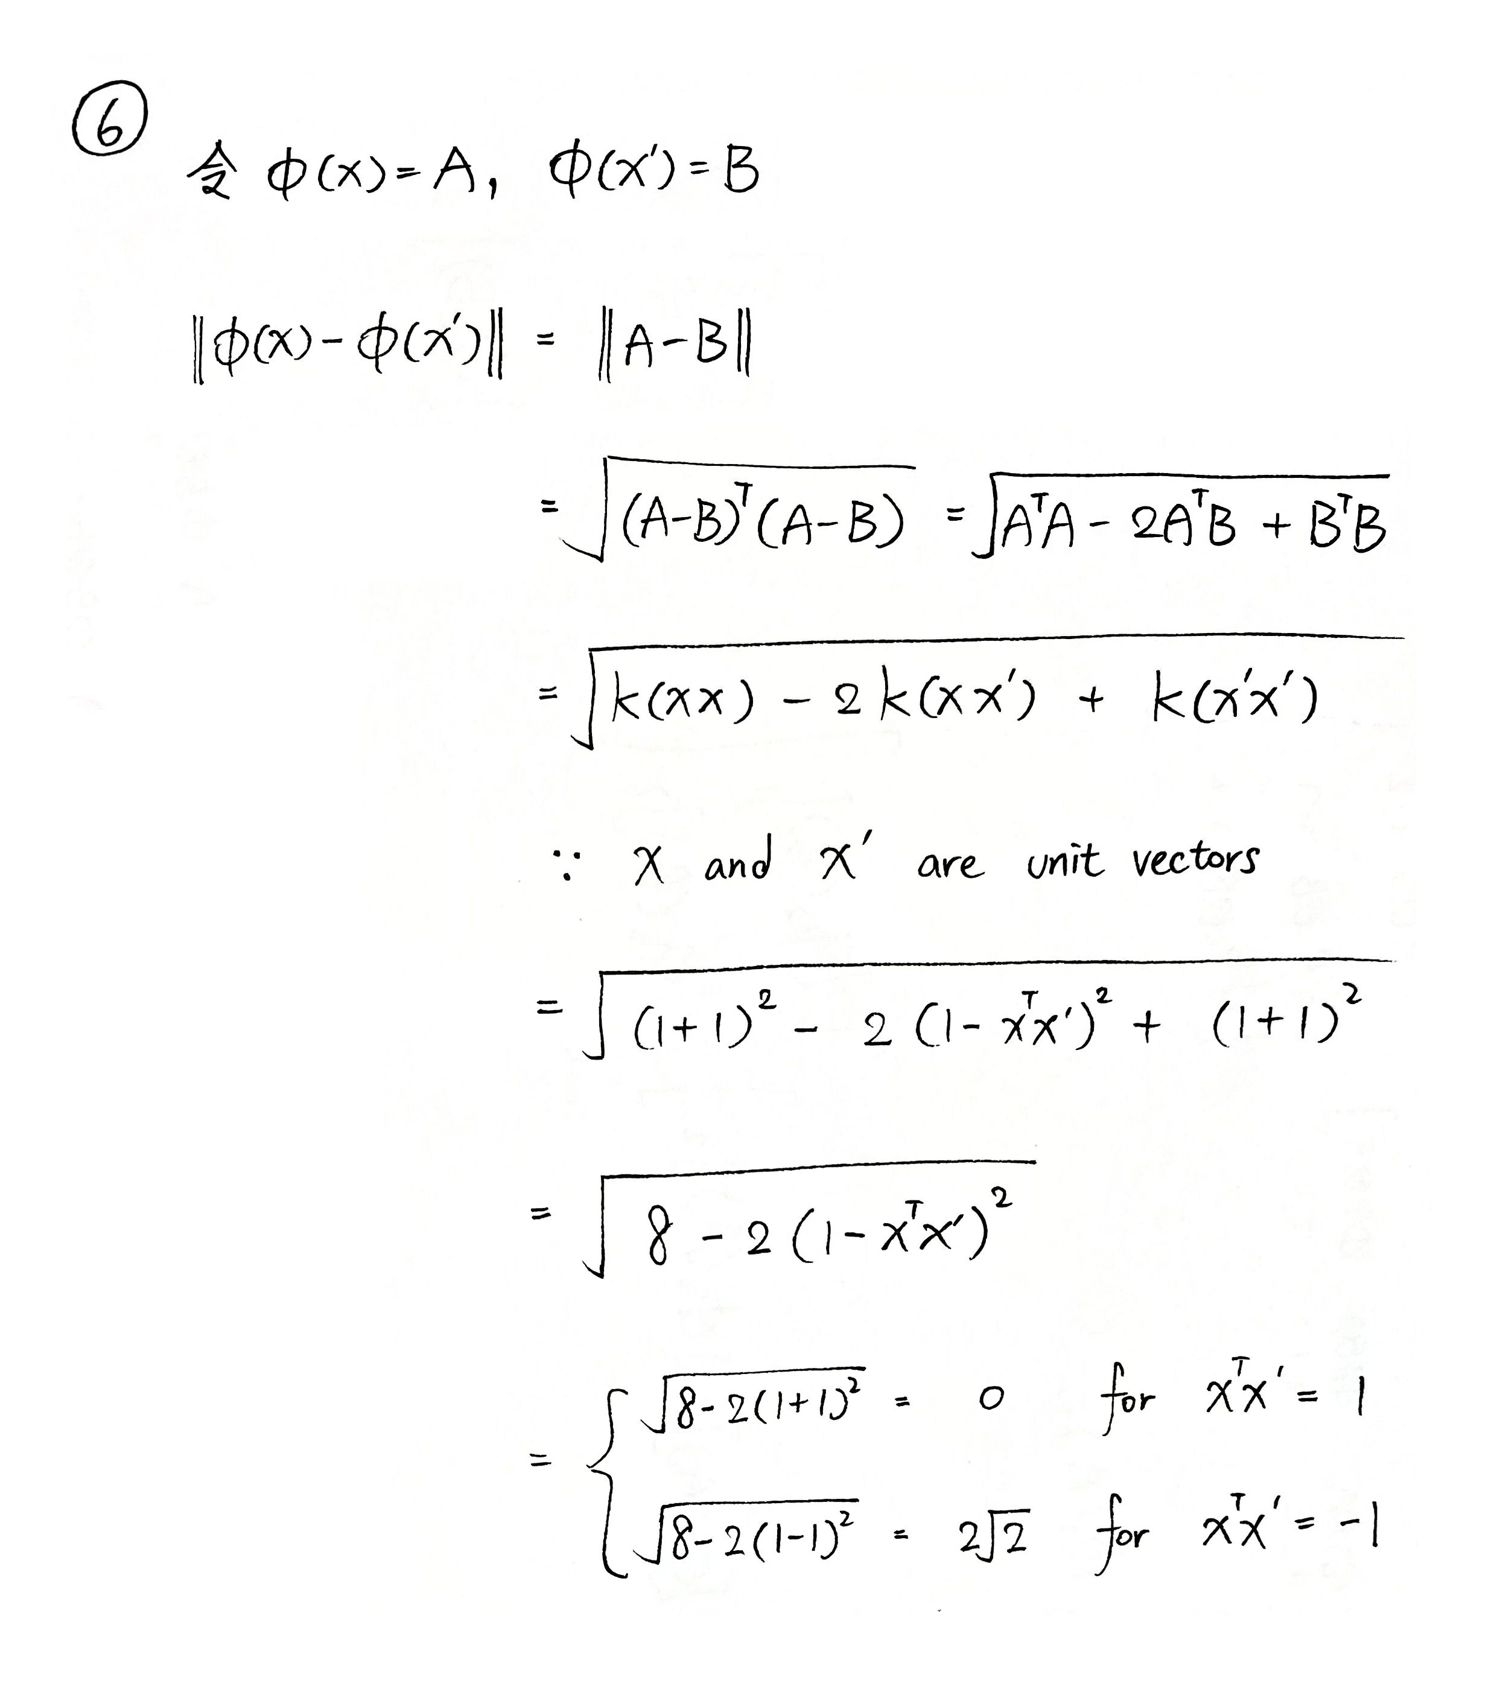 ⑥
令 Φ(x) = A, Φ(x') = B
‖Φ(x) - Φ(x')‖ = ‖A - B‖
= √((A-B)ᵀ(A-B)) = √(AᵀA - 2AᵀB + BᵀB)
= √(k(xx) - 2k(xx') + k(x'x'))
∵ x and x' are unit vectors
= √((1+1)² - 2(1-xᵀx')² + (1+1)²)
= √(8 - 2(1-xᵀx')²)
= { √(8-2(1+1)²) = 0 for xᵀx' = 1
√(8-2(1-1)²) = 2√2 for xᵀx' = -1